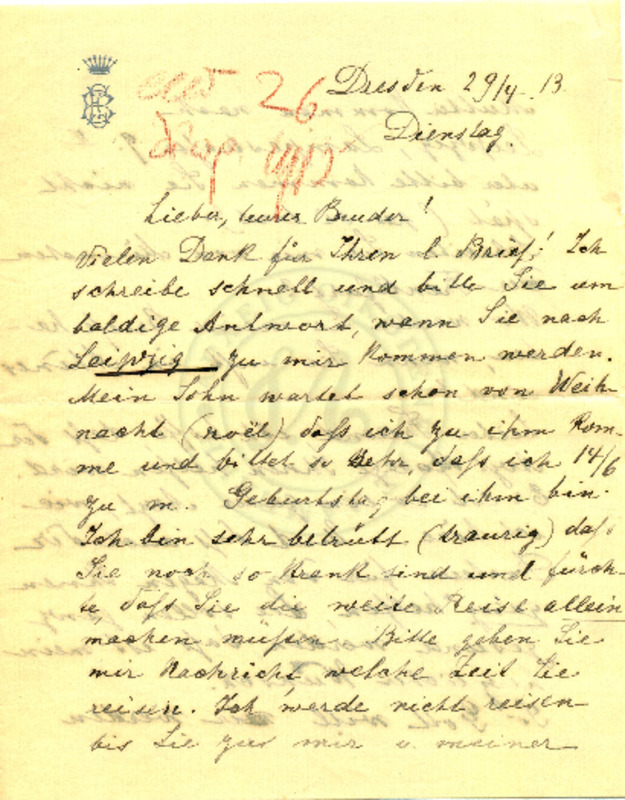 26
Dresden 29/4. 13.
Dienstag.
Lieber, teurer Bruder!
Vielen Dank für Ihren l. Brief! Ich
schreibe schnell und bitte Sie um
baldige Antwort, wann Sie nach
Leipzig zu mir kommen werden.
Mein Sohn wartet schon von Weih-
nacht (noël) daſs ich zu ihm kom-
me und bittet so sehr, daſs ich 14/6
zu m. Geburtstag bei ihm bin.
Ich bin sehr betrübt (traurig) daſs
Sie noch so krank sind und fürch-
te, daſs Sie die weite Reise allein
machen müſsen. Bitte geben Sie
mir Nachricht, welche Zeit Sie
reisen. Ich werde nicht reisen
bis Sie zu mir u. meiner